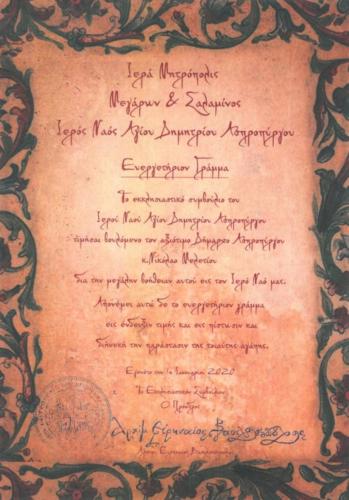 Ιερά Μητρόπολις
Μεγάρων & Σαλαμίνος
Ιερός Ναός Αγίου Δημητρίου Ασπροπύργου
Ευεργετήριον Γράμμα
Το εκκλησιαστικό συμβούλιο του
Ιερού Ναού Αγίου Δημητρίου Ασπροπύργου
τιμήσαι βουλόμενο τον αξιότιμο Δήμαρχο Ασπροπύργου
κ.Νικόλαο Μελετίου
δια την μεγάλην βοήθειαν αυτού εις τον Ιερό Ναό μας.
Απονέμει αυτώ δε το ευεργετήριον γράμμα
εις ένδειξιν τιμής και εις πίστωσιν και
διηνεκή την παράστασιν της τοιαύτης αγάπης.
2020
Το Εκκλησιαστικό Συμβούλιο
Ο Πρόεδρος
Ειρηναίος